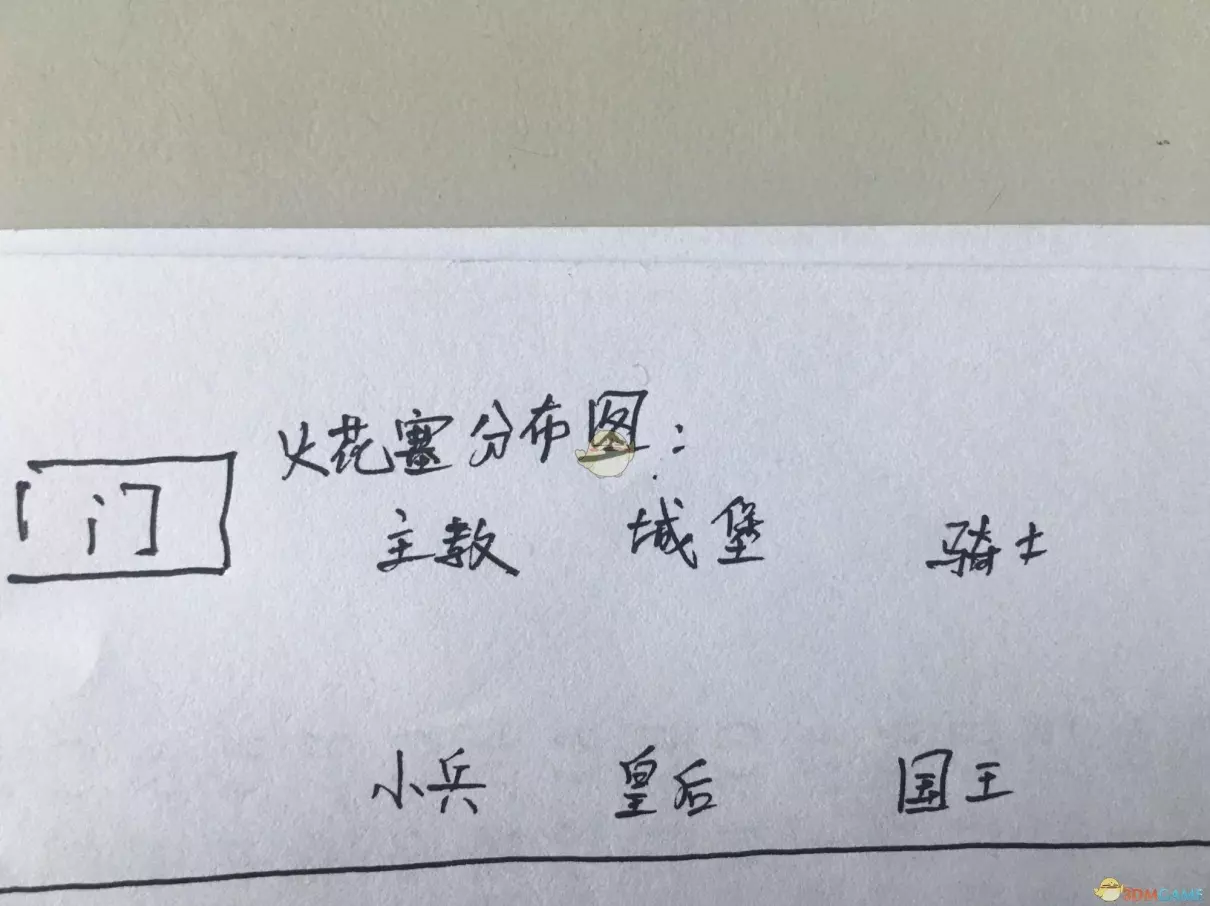 火花塞分布图:
门
主教 城堡 骑士
小兵 皇后 国王
3DMGAME